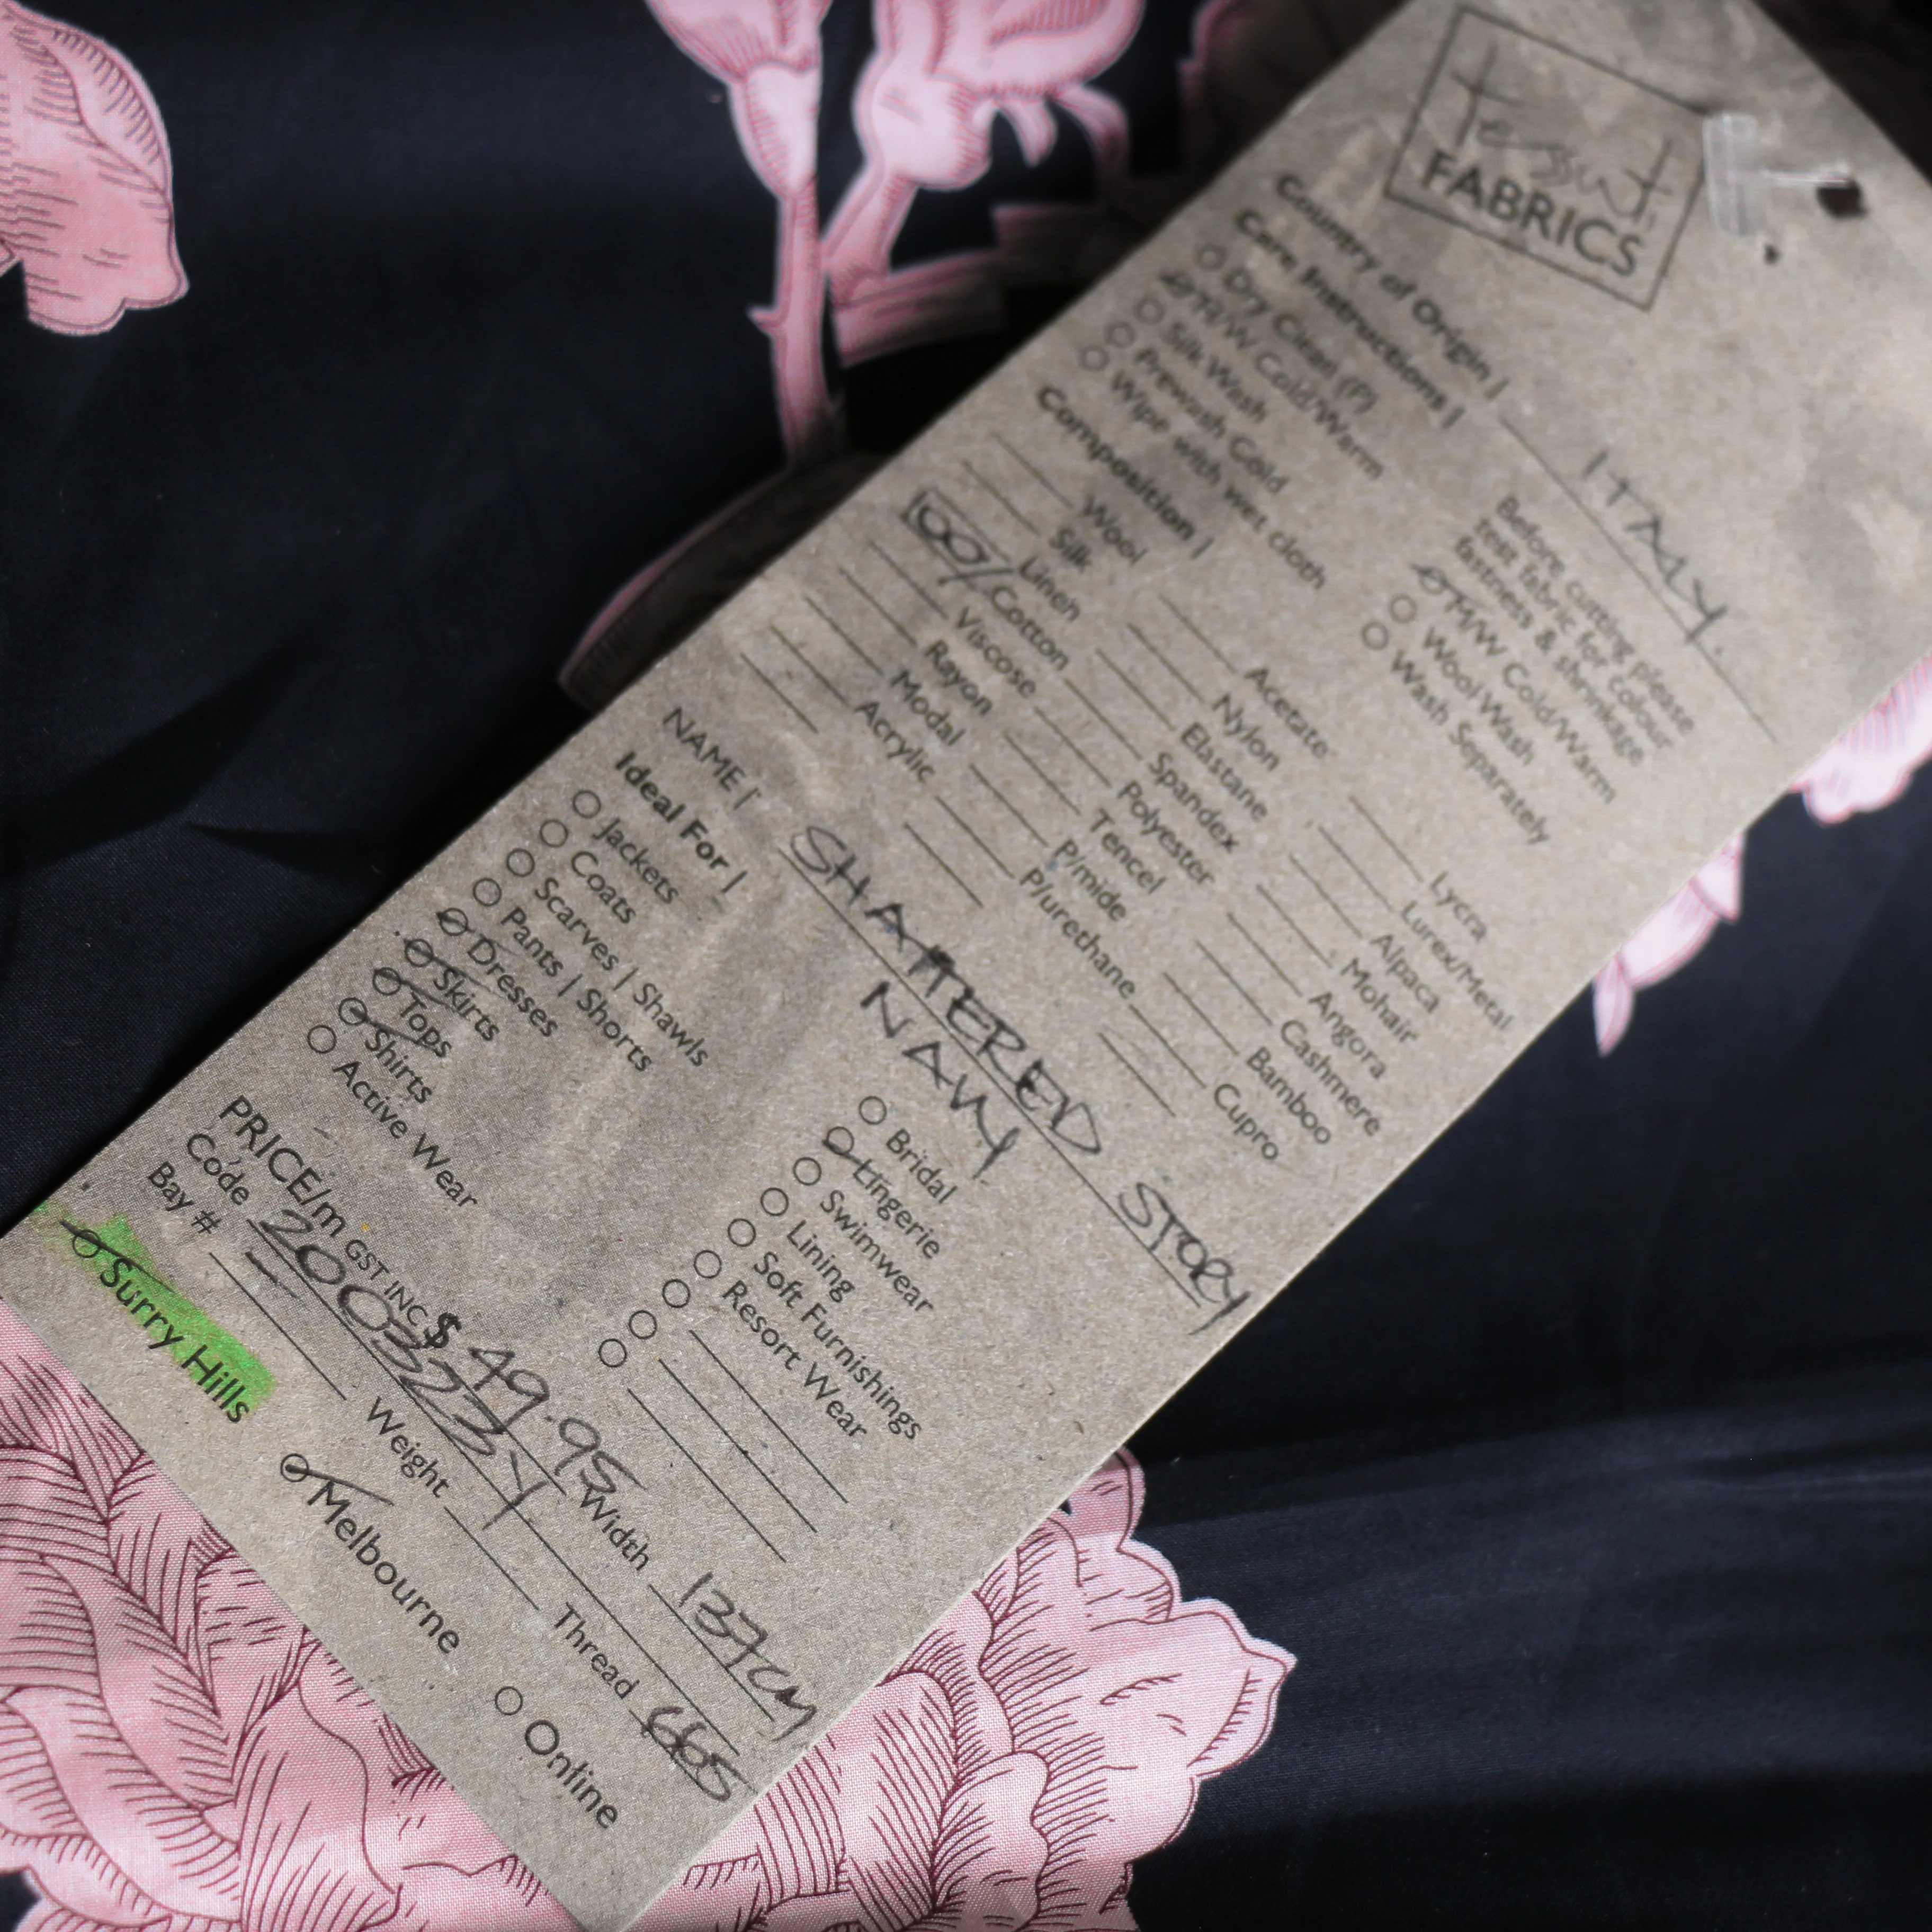 Tessuti
FABRICS
Country of Origin | ITALY.
Care Instructions |
Dry Clean (P)
H/W Cold/Warm
Silk Wash
Prewash Cold
Wipe with wet cloth
Before cutting please
test fabric for colour
fastness & shrinkage
M/W Cold/Warm
Wool Wash
Wash Separately
Composition |
Wool
Silk
Linen
100/ Cotton
Viscose
Rayon
Modal
Acrylic
Acetate
Nylon
Elastane
Spandex
Polyester
Tencel
P/mide
P/urethane
Lycra
Lurex/Metal
Alpaca
Mohair
Angora
Cashmere
Bamboo
Cupro
NAME | SHATTERED STORY
NAVY
Ideal For |
Jackets
Coats
Scarves | Shawls
Pants | Shorts
Dresses
Skirts
Tops
Shirts
Active Wear
Bridal
Lingerie
Swimwear
Lining
Soft Furnishings
Resort Wear
PRICE/m GST INC $ 49.95 Width 137cm
Code
Bay # Weight Thread 665
Surry Hills Melbourne Online